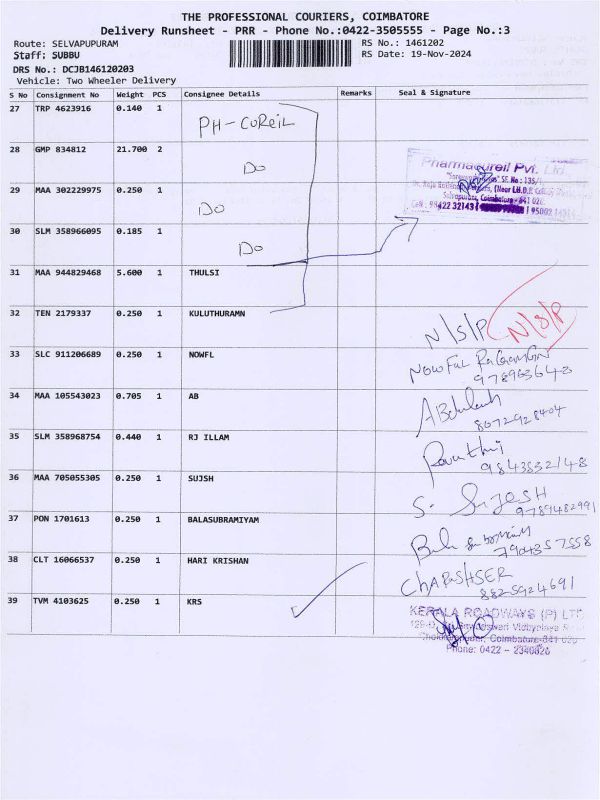 THE PROFESSIONAL COURIERS, COIMBATORE
Delivery Runsheet - PRR - Phone No.:0422-3505555 - Page No.:3
Route: SELVAPUPURAM RS No.: 1461202
Staff: SUBBU RS Date: 19-Nov-2024
DRS No.: DCJB146120203
Vehicle: Two Wheeler Delivery
S No Consignment No Weight PCS Consignee Details Remarks Seal & Signature
27 TRP 4623916 0.140 1 PH-CUReiL
28 GMP 834812 21.700 2 Do
Pharmacureil Pvt. Ltd.
29 MAA 302229975 0.250 1 Do
30 SLM 358966095 0.185 1 Do
31 MAA 944829468 5.600 1 THULSI
32 TEN 2179337 0.250 1 KULUTHURAMN N/S/P N/S/P
33 SLC 911206689 0.250 1 NOWFL NOWFAL
34 MAA 105543023 0.705 1 AB
8072928404
35 SLM 358968754 0.440 1 RJ ILLAM
9843832148
36 MAA 705055305 0.250 1 SUJSH S. SUJOSH
9789482991
37 PON 1701613 0.250 1 BALASUBRAMIYAM
7904357558
38 CLT 16066537 0.250 1 HARI KRISHAN
8825924691
39 TVM 4103625 0.250 1 KRS
KERALA ROADWAYS (P) LTD
Coimbatore-641 026
Phone: 0422 - 2340826